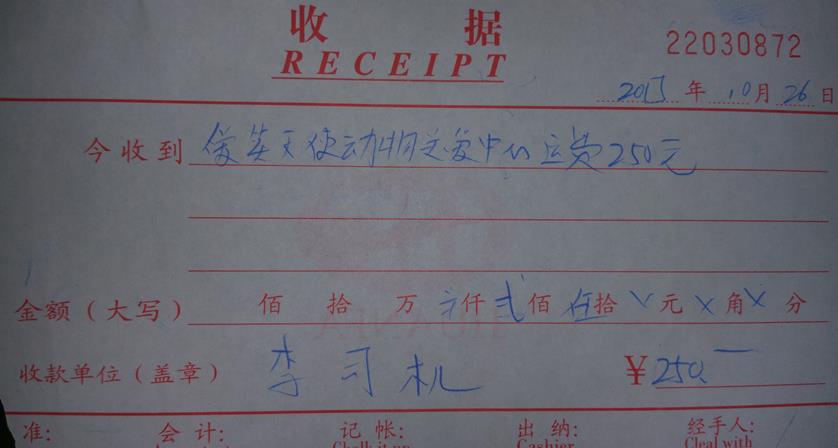 收 据
RECEIPT
22030872
年 10月26日
今收到 爱笑天使动物关爱中心运费250元
金额(大写) 佰 拾 万 仟 贰 佰 伍 拾 元 × 角 × 分
收款单位(盖章) 李司机 ¥250.—
准: 会 计: 记 帐: 出 纳: 经手人:
Chalk it up Cashier Cleal with